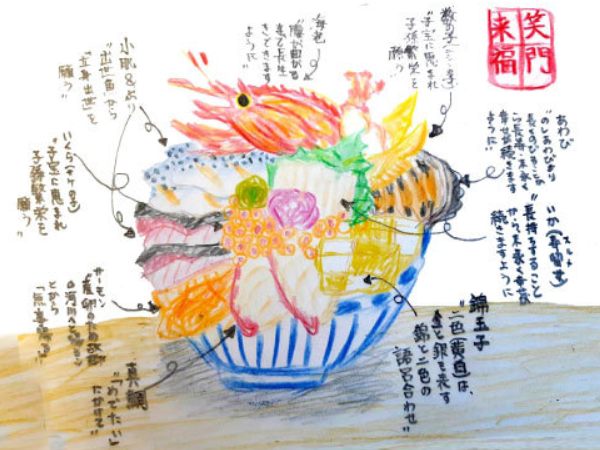 笑門
来福
数の子
"子宝に恵まれ
子孫繁栄を
願う"
海老
"腰が曲がる
まで長生
きできます
ように"
小肌
"出世魚"から
"立身出世"を
願う"
いくら(サケの子)
"子宝に恵まれ
子孫繁栄を
願う"
あわび
"のしあわびより
長くのびることか
ら長寿・末永く
幸せが続きます
ように"
スルメ
いか(寿留女)
"長持ちすること
から末永く幸せが
続きますように
錦玉子
"二色(黄白)は、
金と銀を表す
錦と二色の
語呂合わせ"
サーモン
"産卵のため故郷
の河川へと
とから
真鯛
"「めでたい」
にかけて"